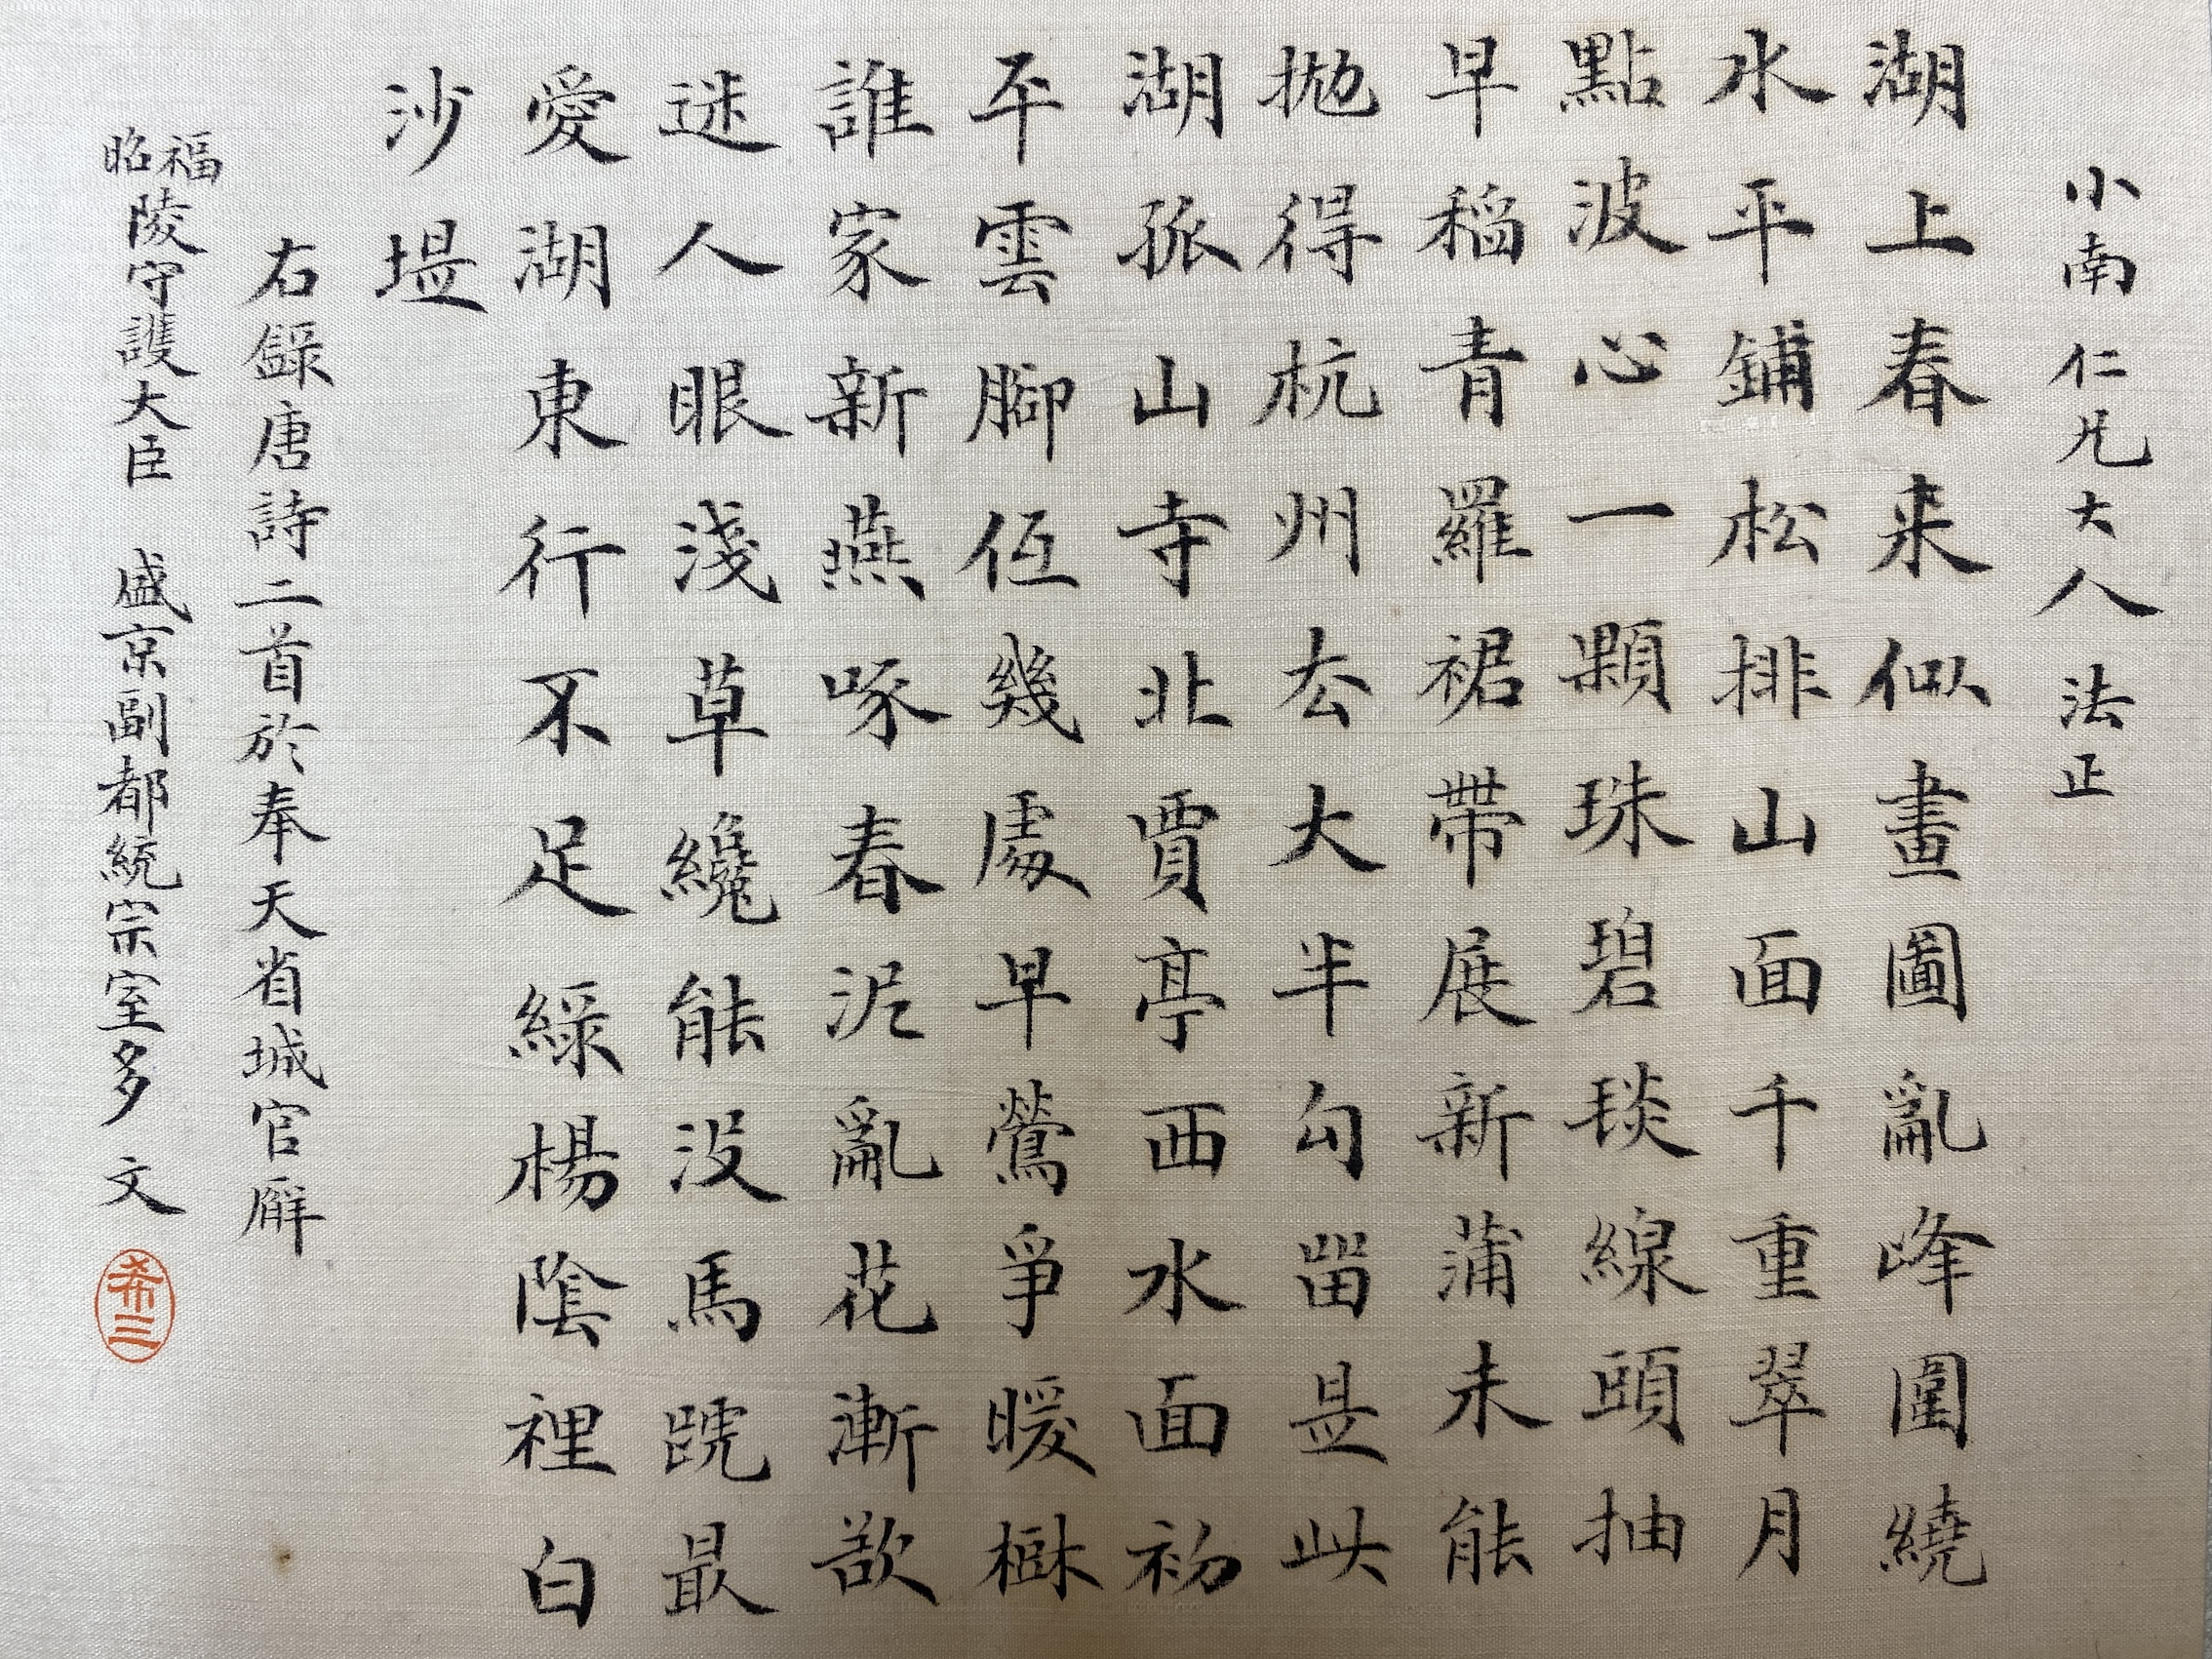 小南仁兄大人法正
湖上春来似畫圖亂峰圍繞
水平鋪松排山面千重翠月
點波心一顆珠碧琰線頭抽
早稻青羅裙帶展新蒲未能
拋得杭州去大半勾留是此
湖孤山寺北賈亭西水面初
平雲腳低幾處早鶯爭暖樹
誰家新燕啄春泥亂花漸欲
迷人眼淺草纔能沒馬蹄最
愛湖東行不足綠楊陰裡白
沙堤
右錄唐詩二首於奉天省城官廨
福昭陵守護大臣 盛京副都統宗室多文
希三